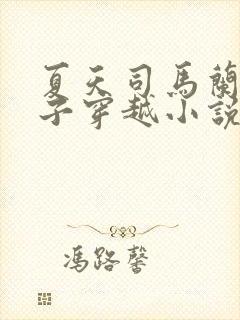 夏天司馬蘭
子穿越小說
馮路馨